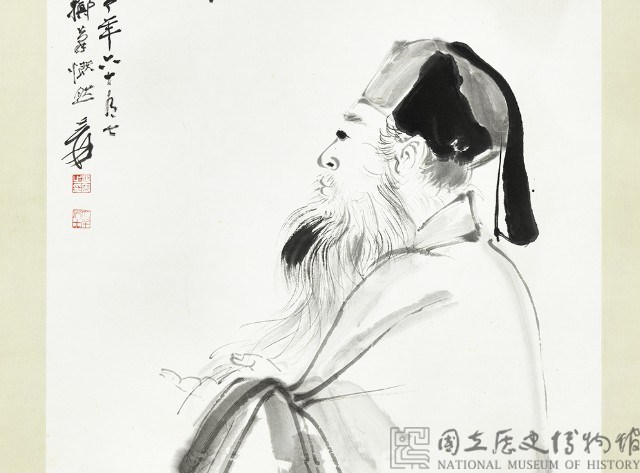 年六十有七
擲筆慨然
爰
國立歷史博物館
NATIONAL MUSEUM OF HISTORY